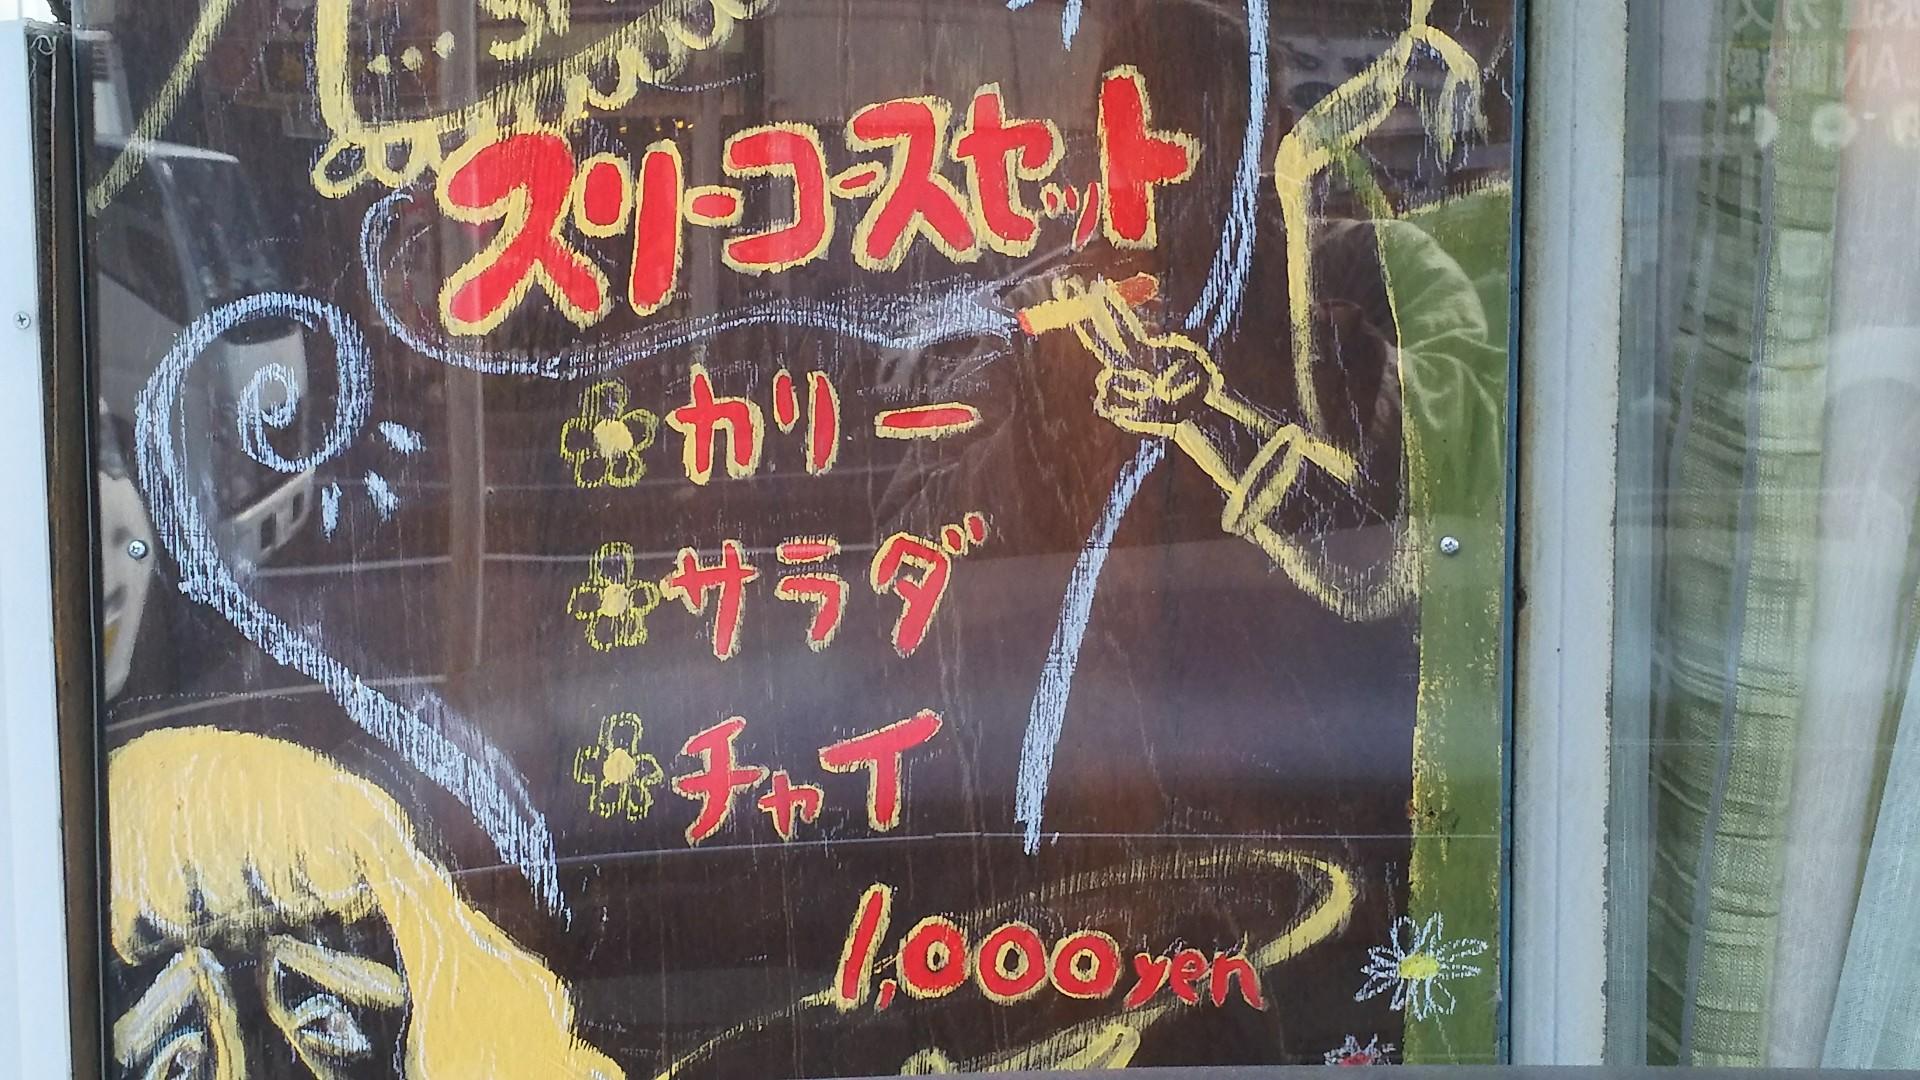 スリーコースセット
カリー
サラダ
チャイ
1,000yen